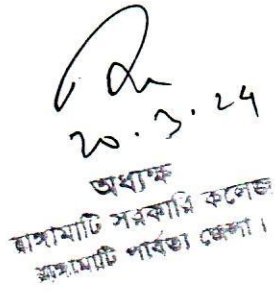 20.3.24
অধ্যক্ষ
রাঙ্গামাটি সরকারি কলেজ
রাঙ্গামাটি পার্বত্য জেলা।